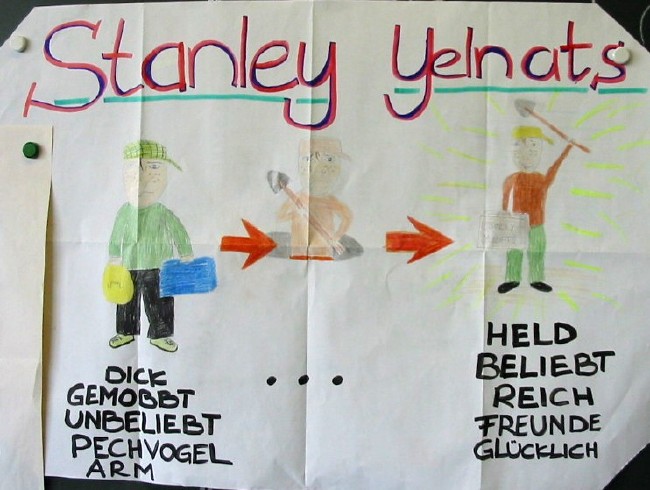 Stanley Yelnats
DICK
GEMOBBT
UNBELIEBT
PECHVOGEL
ARM
...
HELD
BELIEBT
REICH
FREUNDE
GLÜCKLICH